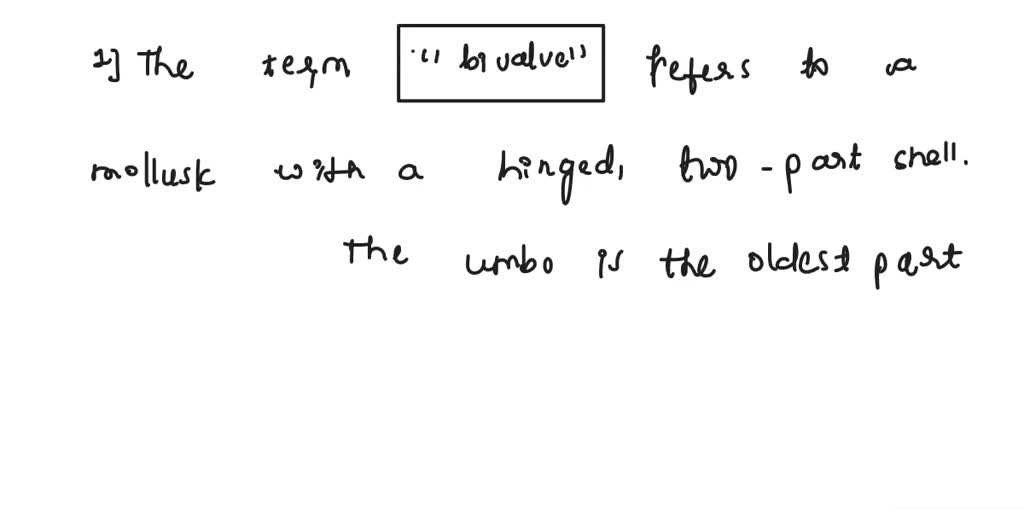 1] The term "bivalve" refers to a
mollusk with a hinged, two-part shell.
The umbo is the oldest part